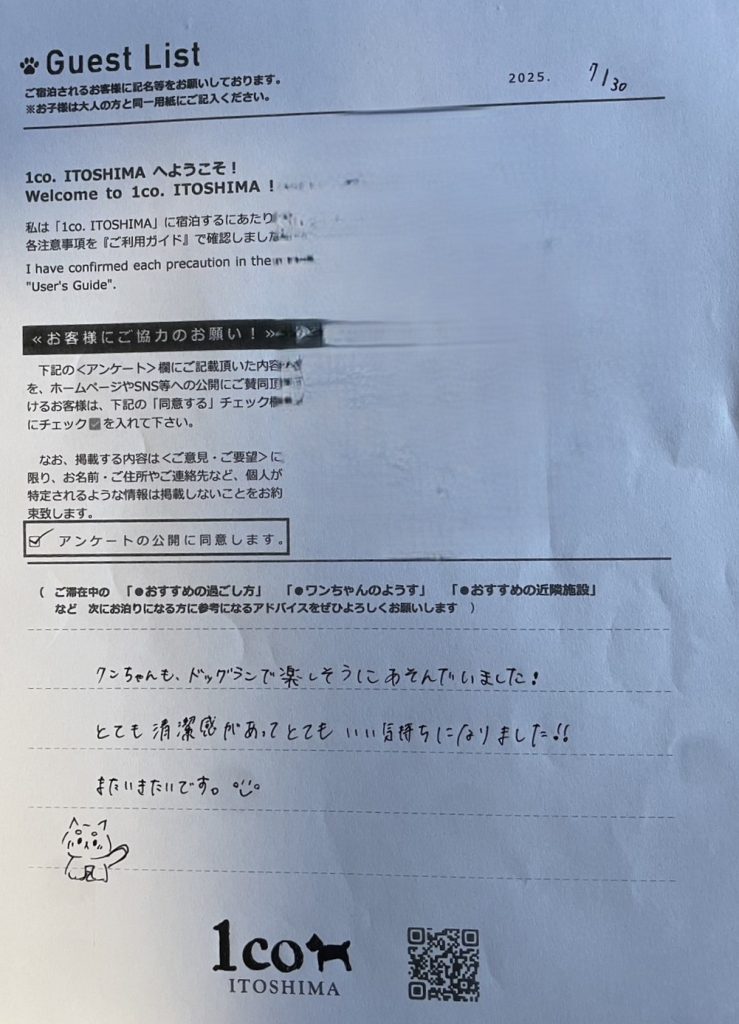 Guest List
ご宿泊されるお客様に記名等をお願いしております。
※お子様は大人の方と同一用紙にご記入ください。
2025. 7/30
1co. ITOSHIMA へようこそ！
Welcome to 1co. ITOSHIMA !
私は「1co. ITOSHIMA」に宿泊するにあたり
各注意事項を『ご利用ガイド』で確認しました
I have confirmed each precaution in the
"User's Guide".
≪お客様にご協力のお願い！≫
下記の<アンケート>欄にご記載頂いた内容
を、ホームページやSNS等への公開にご賛同頂
けるお客様は、下記の「同意する」チェック欄
にチェック☑を入れて下さい。
なお、掲載する内容は<ご意見・ご要望>に
限り、お名前・ご住所やご連絡先など、個人が
特定されるような情報は掲載しないことをお約
束致します。
☑ アンケートの公開に同意します。
( ご滞在中の 「●おすすめの過ごし方」 「●ワンちゃんのようす」 「●おすすめの近隣施設」
など 次にお泊りになる方に参考になるアドバイスをぜひよろしくお願いします )
ワンちゃんも、ドッグランで楽しそうにあそんでいました!
とても清潔感があってとてもいい気持ちになりました!!
またいきたいです。
1co
ITOSHIMA